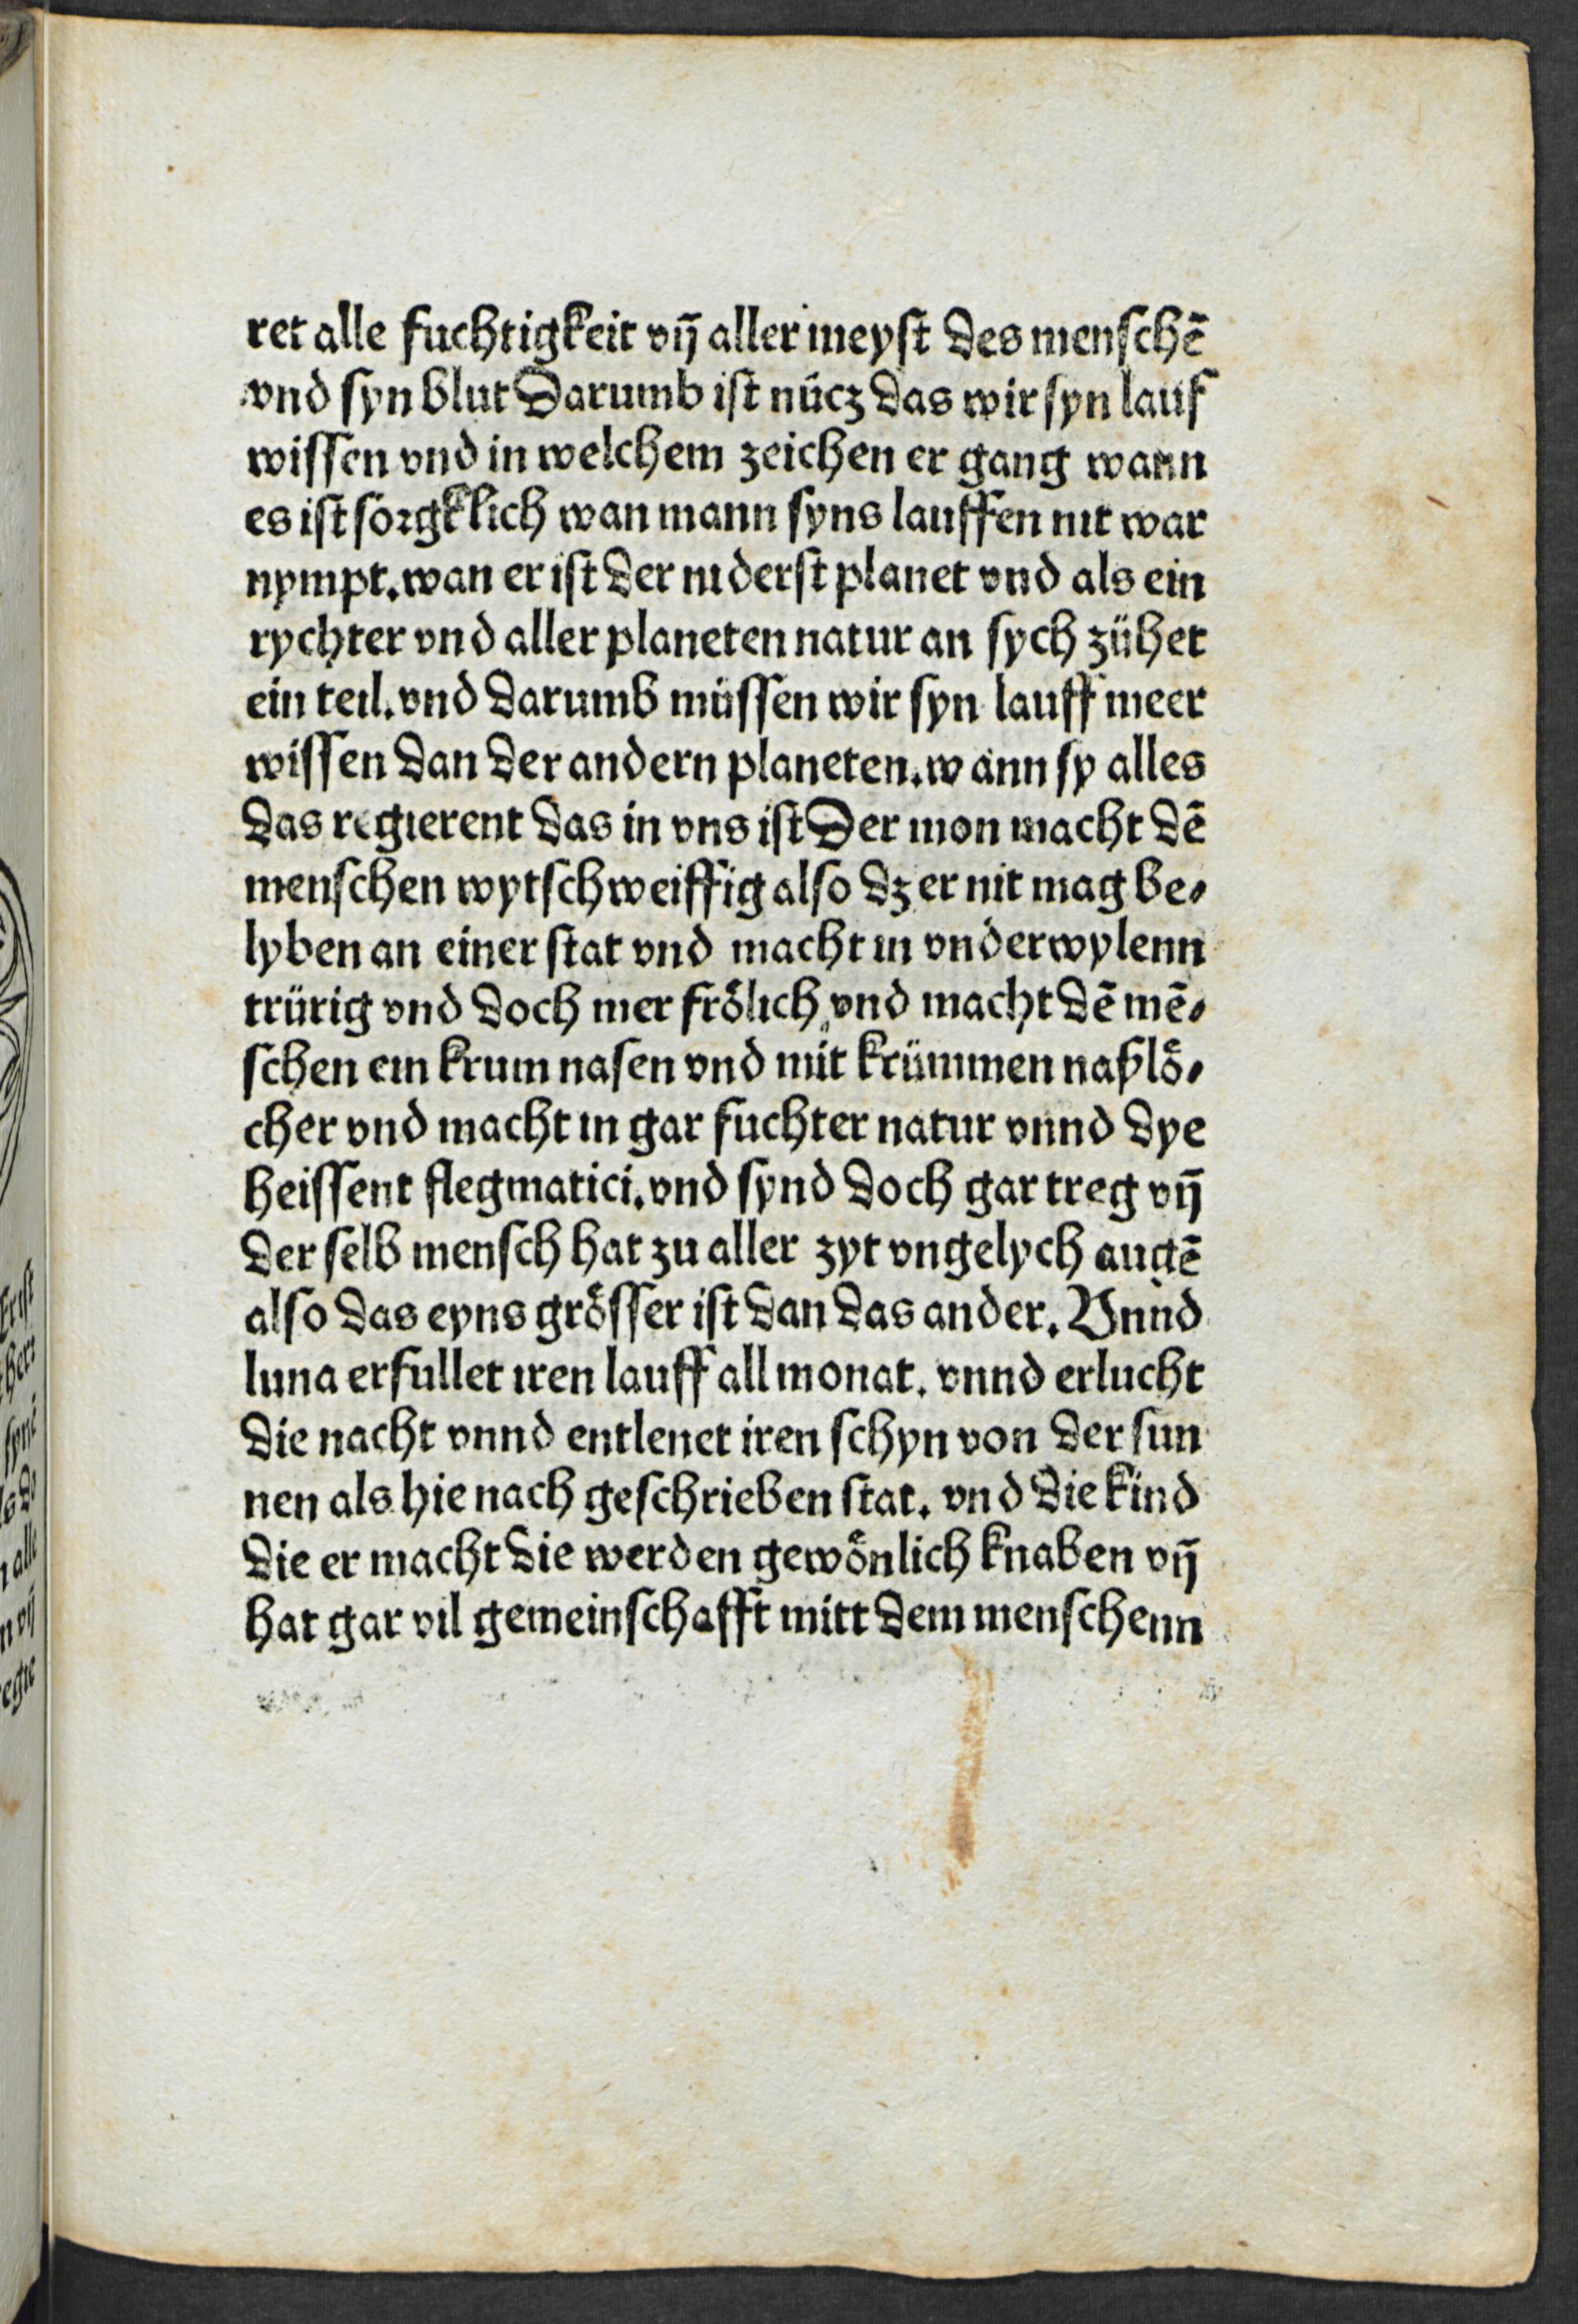 ret alle fuchtigkeit vñ aller meyst des menschē
vnd syn blut Darumb ist nücz das wir syn lauf
wissen vnd in welchem zeichen er gang wann
es ist sorgklich wan mann syns lauffen nit war
nympt. wan er ist der niderst planet vnd als ein
rychter vnd aller planeten natur an sych zühet
ein teil. vnd darumb müssen wir syn lauff meer
wissen dan der andern planeten. wann sy alles
das regierent das in vns ist Der mon macht dē
menschen wytschweiffig also dz er nit mag be⸗
lyben an einer stat vnd macht in vnderwylenn
trürig vnd doch mer frölich vnd macht dē mē⸗
schen ein krum nasen vnd mit krümmen naßlö⸗
cher vnd macht in gar fuchter natur vnnd dye
heissent flegmatici. vnd synd doch gar treg vñ
der selb mensch hat zu aller zyt vngelych augē
also das eyns grösser ist dan das ander. Vnnd
luna erfullet iren lauff all monat. vnnd erlucht
die nacht vnnd entlenet iren schyn von der sun
nen als hie nach geschrieben stat. vnd die kind
die er macht die werden gewönlich knaben vñ
hat gar vil gemeinschafft mitt dem menschenn